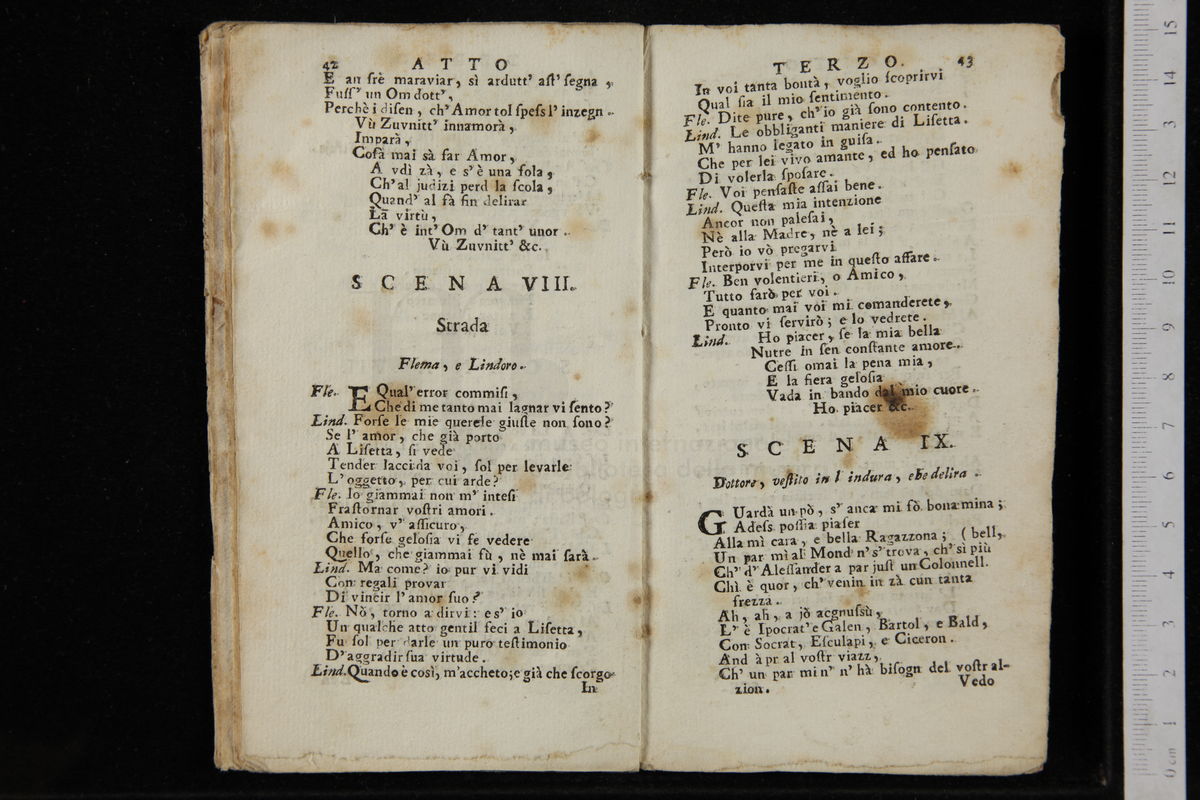 42 ATTO
E an srè maraviar, sì ardutt' ast' segna,
Fuss' un Om dott',
Perchè i disen, ch'Amor tol spess l' inzegn.
Vù Zuvnitt' innamorà,
Imparà,
Cosà mai sà far Amor,
A vdì zà, e s' è una fola,
Ch'al judizi perd la scola,
Quand' al fà fin delirar
La virtù,
Ch' è int' Om d' tant' unor.
Vù Zuvnitt' &c.
SCENA VIII.
Strada
Flema, e Lindoro.
Fle. E Qual' error commisi,
Che di me tanto mai lagnar vi sento?
Lind. Forse le mie querele giuste non sono?
Se l' amor, che già porto
A Lisetta, si vede
Tender lacci da voi, sol per levarle
L' oggetto, per cui arde?
Fle. Io giammai non m' intesi
Frastornar vostri amori.
Amico, v' assicuro,
Che forse gelosia vi fe vedere
Quello, che giammai fù, nè mai sarà.
Lind. Ma come? io pur vi vidi
Con regali provar
Di vincir l' amor suo?
Fle. Nò, torno a dirvi: e s' io
Un qualche atto gentil feci a Lisetta,
Fu sol per darle un puro testimonio
D' aggradir sua virtude.
Lind. Quando è così, m'accheto; e già che scorgo
In
TERZO. 43
In voi tanta bontà, voglio scoprirvi
Qual sia il mio sentimento.
Fle. Dite pure, ch'io già sono contento.
Lind. Le obbliganti maniere di Lisetta.
M' hanno legato in guisa.
Che per lei vivo amante, ed ho pensato
Di volerla sposare.
Fle. Voi pensaste assai bene.
Lind. Questa mia intenzione
Ancor non palesai,
Nè alla Madre, nè a lei;
Però io vò pregarvi
Interporvi per me in questo affare.
Fle. Ben volentieri, o Amico,
Tutto farò per voi.
E quanto mai voi mi comanderete,
Pronto vi servirò; e lo vedrete.
Lind. Ho piacer, se la mia bella
Nutre in sen constante amore.
Cessi omai la pena mia,
E la fiera gelosia
Vada in bando dal mio cuore.
Ho piacer &c.
SCENA IX.
Dottore, vestito in l indura, che delira.
GUardà un pò, s' anca mi sò bona mina;
Adess possia piaser
Alla mì cara, e bella Ragazzona; ( bell,
Un par mi al Mond n's' trova, ch' sì più
Ch' d' Alessander a par just un Colonnell.
Chì è quor, ch' venin in zà cun tanta
frezza.
Ah, ah, a jò acgnussù,
L' è Ipocrat' e Galen, Bartol, e Bald,
Con Socrat, Esculapi, e Ciceron.
And à pr al vostr viazz,
Ch' un par mi n' n' hà bisogn del vostr al-
zion.
Vedo